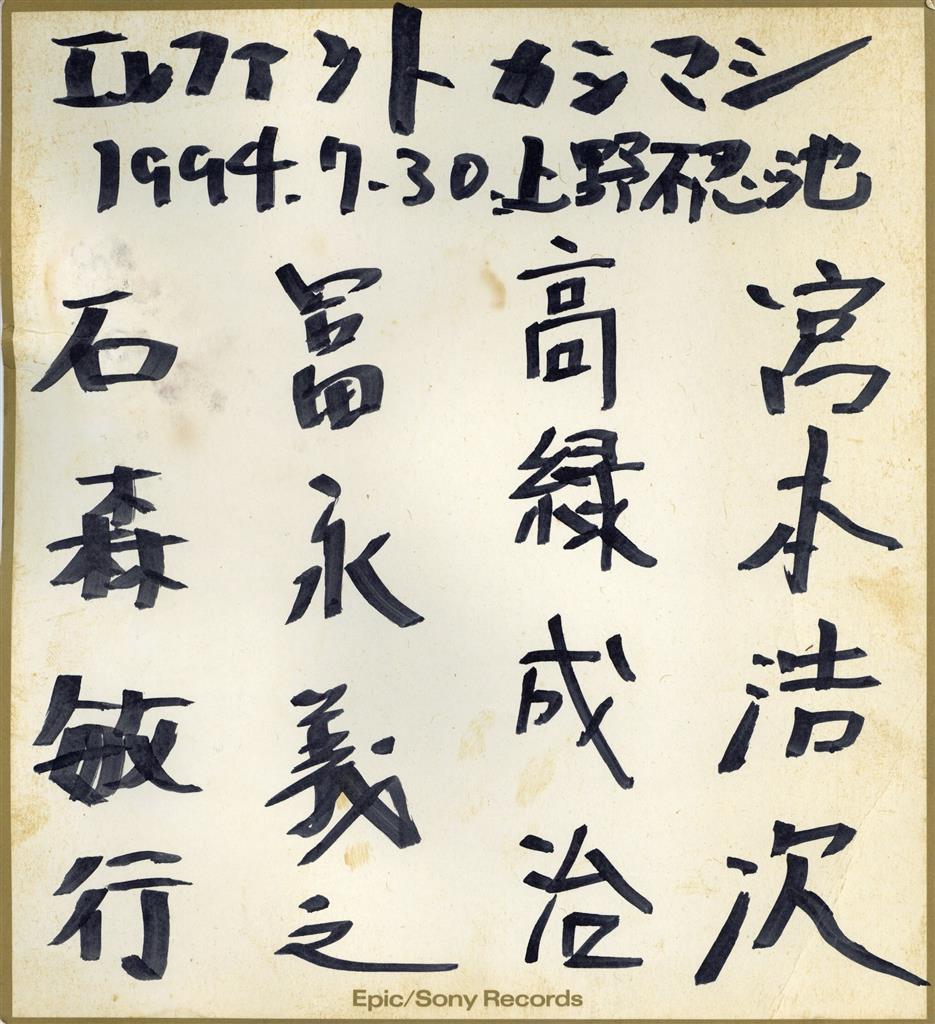 エレファント カシマシ
1994.7.30.上野不忍池
宮本浩次
高緑成治
冨永義之
石森敏行
Epic/Sony Records